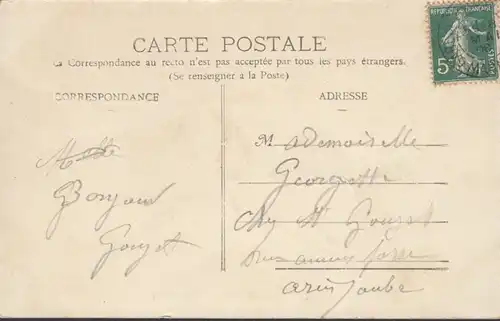 CARTE POSTALE
La Correspondance au recto n'est pas acceptée par tous les pays étrangers.
(Se renseigner à la Poste)
CORRESPONDANCE
Bonjour
Gouzet
ADRESSE
Mademoiselle
Georgette
Chez Mr Gouzet
Arcis s aube
REPUBLIQUE FRANÇAISE
5